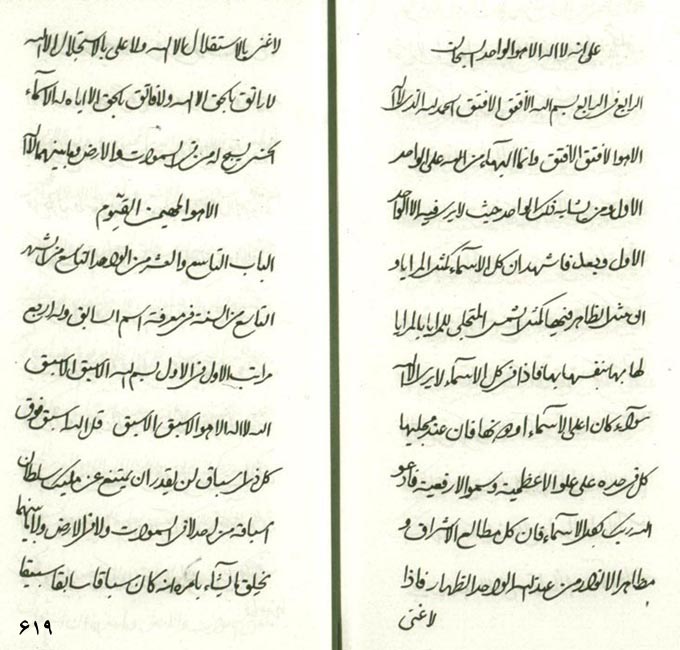 على انه لا اله الا هو الواحد السبحان
الرابع في الرابع بسم الله الافتق الافتق الحمد لله الذي لا اله
الا هو الافتق الافتق وانما البهاء من الله على الواحد
الاول ومن يشابه ذلك الواحد حيث لا يرى فيه الا الواحد
الاول وبعد فاشهد ان كل الاسماء كمثل المرايا و
ان مثل الظاهر فيها كمثل الشمس المتجلي للمرايا بالمرايا
لها بها بنفسها بها فاذا في كل الاسماء لا يرى الا الله
سواء كان اعلى الاسماء او دونها فان عند مجليها
كل في حده على علو الاعظمية وسمو الارفعية فادعو
الله ربك بكل الاسماء فان كل مطالع الاشراق و
مظاهر الانوار من عند الله الواحد الظهار فاذا
لا غنى
لا غنى بالاستقلال الا الله ولا على بالاستجلال الا الله
لا راتق بالحق الا الله ولا فاتق بالحق الا اياه له الاسماء
الحسنى يسبح له من في السموات والارض وما بينهما لا اله
الا هو المهيمن القيوم
الباب التاسع والعشر من الواحد التاسع من الشهر
التاسع من السنة في معرفة اسم السابق وله اربع
مراتب الاول في الاول بسم الله الاسبق الاسبق
الله لا اله الا هو الاسبق الاسبق قل الله اسبق فوق
كل ذي سباق لن يقدر ان يمتنع عن مليك سلطان
اسباقه من احد لا في السموات ولا في الارض ولا ما بينهما
يخلق ما يشاء بامره انه كان سباقا سابقا سبيقا
۶۱۹